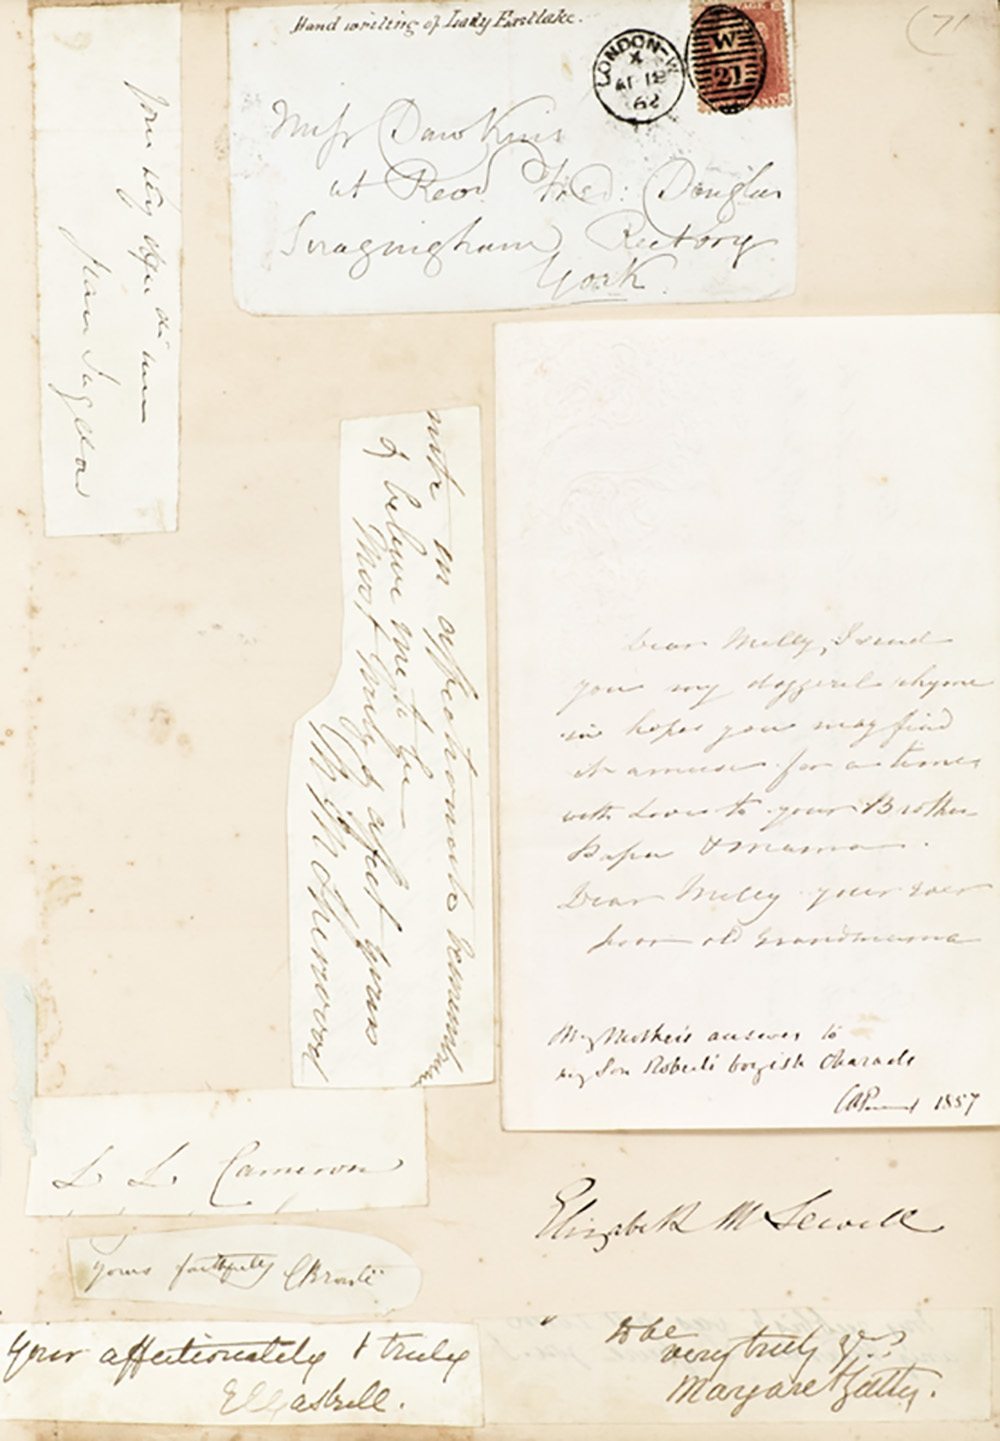 (71
Hand writing of Lady Eastlake.
LONDON-W
X
AU 18
62
W
21
Miss Dawkins
at Revd. Fred: Douglas
Rectory
York
your very
note an affectionate
& believe me to be
Most truly & affect yours
M M Sherwood
Dear Milly, I send
you my doggerel rhyme
in hopes you may find
it amuse for a time
with Love to your Brother
Papa & Mama.
Dear Milly your ever
poor old Grandmama
My Mother's answer to
my Son Robert's boyish Charade
1857
L L Cameron
Elizabeth M Sewell
yours faithfully CBrontë
Your affectionately & truly
E C Gaskell.
to be
very truly yrs
Margaret Gatty.